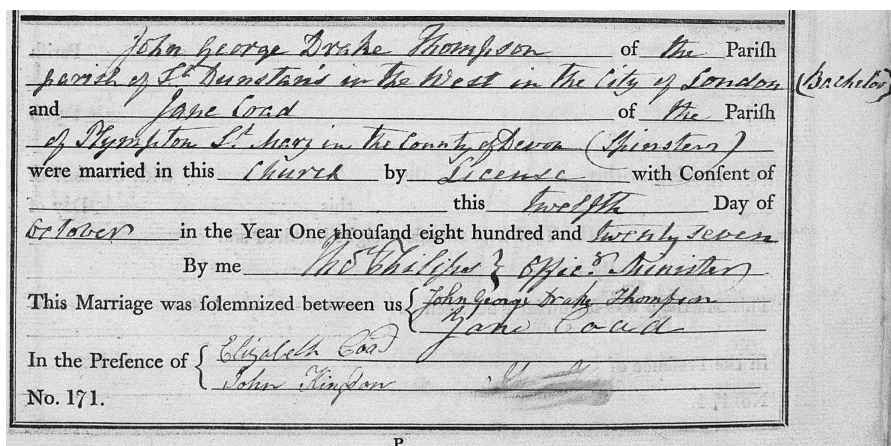 John George Drake Thompson of the Pariſh
parish of St Dunstan's in the West in the City of London (Bachelor)
and Jane Coad of the Pariſh
of Plympton St Mary in the County of Devon (Spinster)
were married in this Church by License with Conſent of
this twelfth Day of
October in the Year One thouſand eight hundred and twenty seven
By me Thos Philips } Offic.g Minister
This Marriage was ſolemnized between us { John George Drake Thompson
Jane Coad
In the Preſence of { Elizabeth Coad
John Kingdon
No. 171.
P